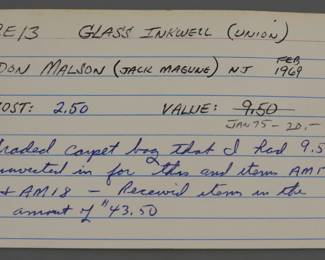 2E13 GLASS INKWELL (UNION)
DON MALSON (JACK MAGUNE) NJ FEB 1969
COST: 2.50 VALUE: 9.50
JAN 75 - 20.-
traded carpet bag that I had 9.5
invested in for this and items AM1
+ AM18 - Received items in the
amount of $43.50